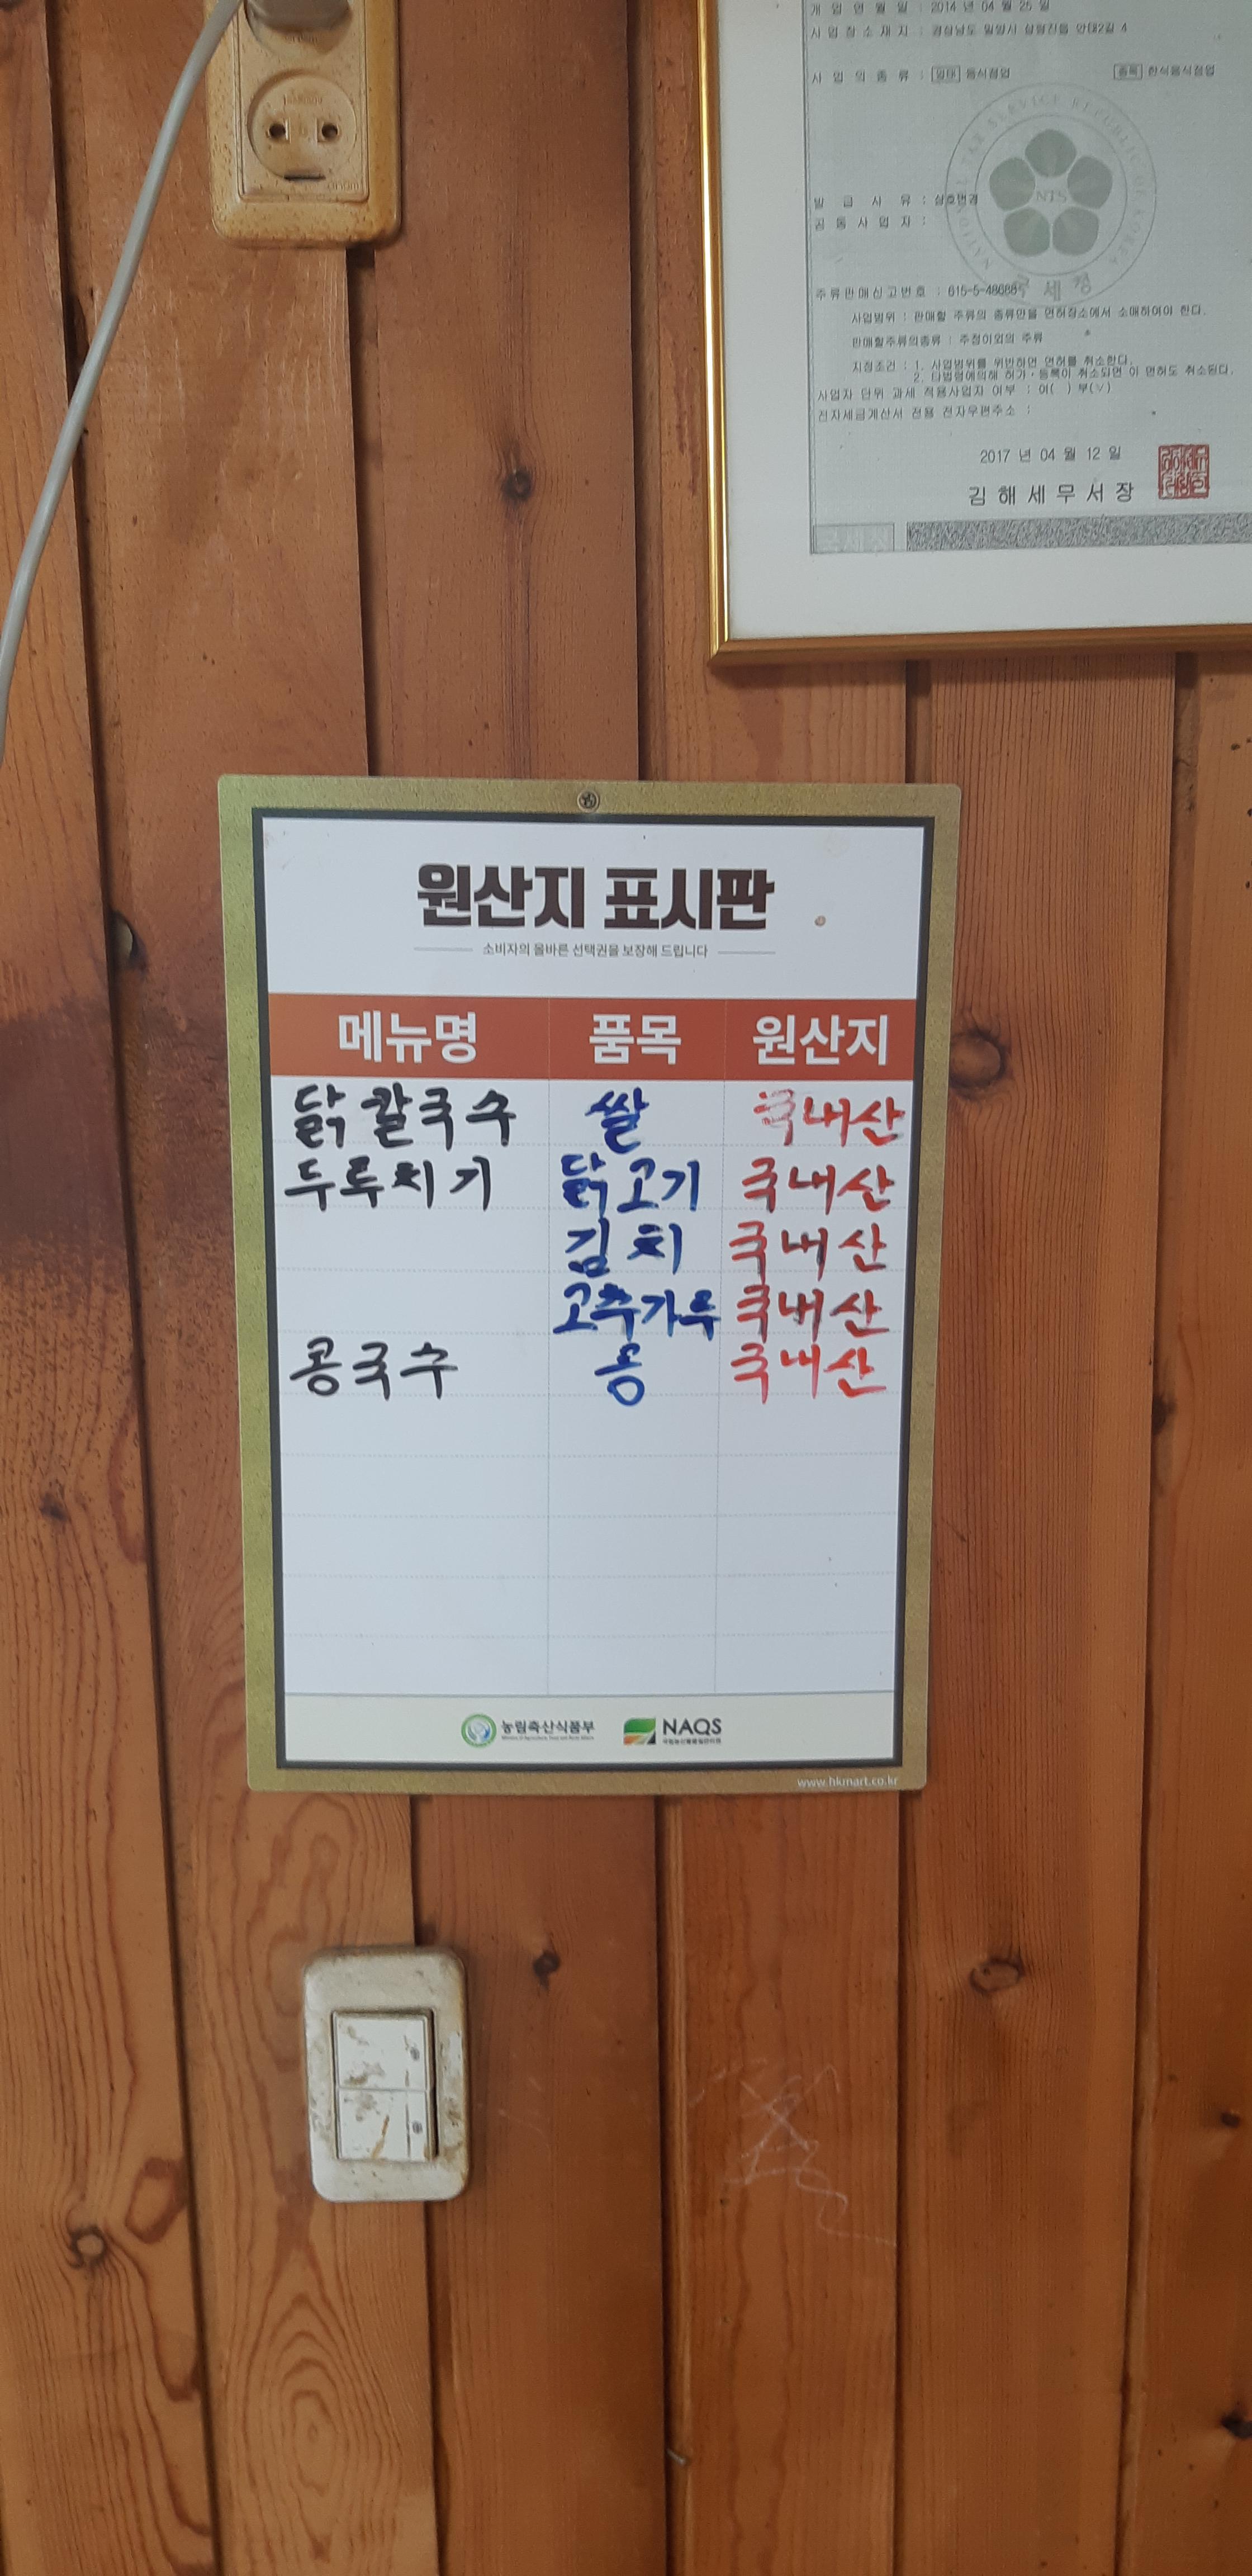 개 업 연 월 일 : 2014 년 04 월 25 일
사 업 장 소 재 지 : 경상남도 밀양시 삼랑진읍 안태2길 4
사 업 의 종 류 : 업태 음식점업 종목 한식음식점업
NATIONAL TAX SERVICE REPUBLIC OF KOREA
NTS
국세청
발 급 사 유 : 상호변경
공 동 사 업 자 :
주류판매신고번호 : 615-5-48688
사업범위 : 판매할 주류의 종류만을 면허장소에서 소매하여야 한다.
판매할주류의종류 : 주정이외의 주류
지정조건 : 1. 사업범위를 위반하면 면허를 취소한다.
2. 타법령에의해 허가·등록이 취소되면 이 면허도 취소된다.
사업자 단위 과세 적용사업자 여부 : 여( ) 부(∨)
전자세금계산서 전용 전자우편주소 :
2017 년 04 월 12 일
김 해 세 무 서 장
원산지 표시판
소비자의 올바른 선택권을 보장해 드립니다
메뉴명 품목 원산지
닭칼국수 쌀 국내산
두루치기 닭고기 국내산
김치 국내산
고추가루 국내산
콩국수 콩 국내산
농림축산식품부 NAQS
국립농산물품질관리원
www.hkmart.co.kr